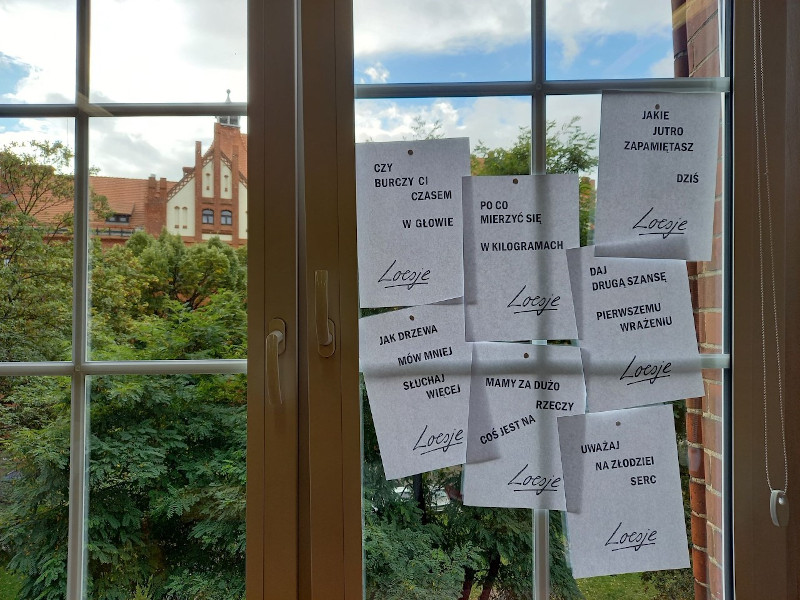 CZY
BURCZY CI
CZASEM
W GŁOWIE
Loesje
PO CO
MIERZYĆ SIĘ
W KILOGRAMACH
Loesje
JAKIE
JUTRO
ZAPAMIĘTASZ
DZIŚ
Loesje
JAK DRZEWA
MÓW MNIEJ
SŁUCHAJ
WIĘCEJ
Loesje
MAMY ZA DUŻO
RZECZY
COŚ JEST NA
Loesje
DAJ
DRUGĄ SZANSĘ
PIERWSZEMU
WRAŻENIU
Loesje
UWAŻAJ
NA ZŁODZIEI
SERC
Loesje